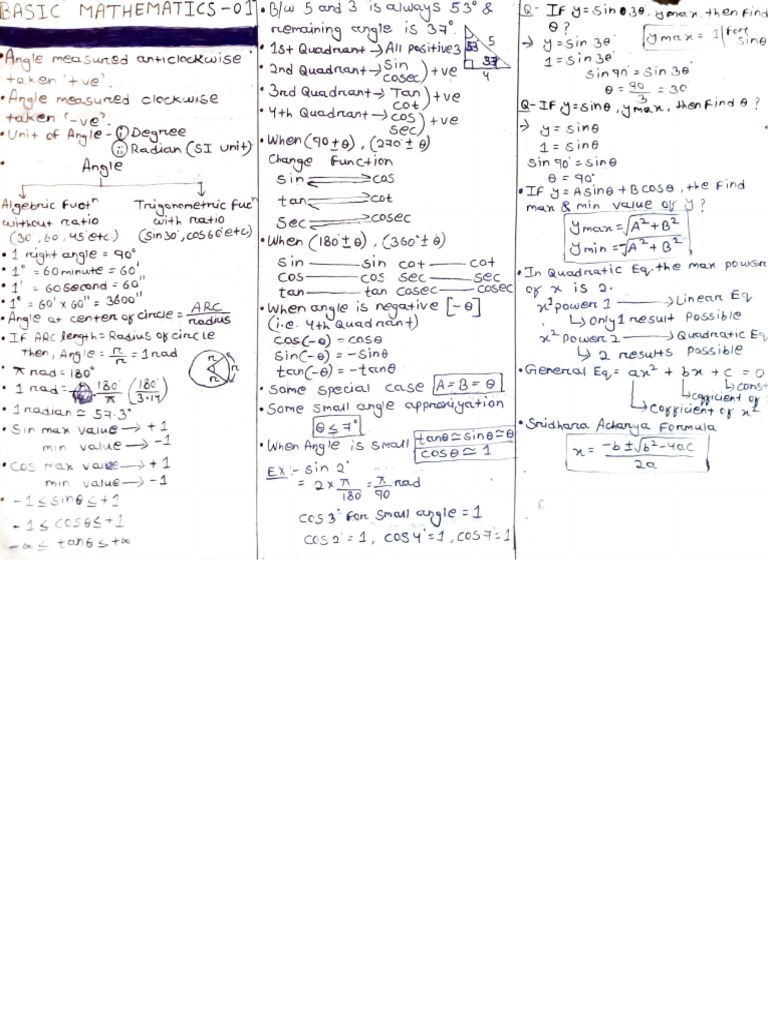 BASIC MATHEMATICS-01
• Angle measured anticlockwise
taken '+ve'.
• Angle measured clockwise
taken '-ve'.
• Unit of Angle - (i) Degree
(ii) Radian (SI unit)
• Angle
Algebric Fuctⁿ
without ratio
(30, 60, 45 etc.)
Trigonometric Fucⁿ
with ratio
(sin30°, cos60° etc)
• 1 right angle = 90°
• 1° = 60 minute = 60'
• 1' = 60 second = 60"
• 1° = 60' x 60" = 3600"
• Angle at center of circle = ARC/radius
• IF ARC length = Radius of circle
Then, Angle = r/r = 1 rad
r
r
r
• π rad = 180°
• 1 rad = 180°/π (180°/3.14)
• 1 radian ≃ 57.3°
• Sin max value → +1
min value → -1
• Cos max value → +1
min value → -1
• -1 ≤ sinθ ≤ +1
- 1 ≤ cosθ ≤ +1
-∝ ≤ tanθ ≤ +∝
• B/w 5 and 3 is always 53° &
remaining angle is 37°.
3
53
5
37°
4
• 1st Quadrant → All positive
• 2nd Quadrant → Sin
cosec ) +ve
• 3rd Quadrant → Tan
cot ) +ve
• 4th Quadrant → cos
sec ) +ve
• When (90 ± θ), (270° ± θ)
Change Function
sin ⇌ cos
tan ⇌ cot
sec ⇌ cosec
• When (180° ± θ), (360° ± θ)
sin — sin cot — cot
cos — cos sec — sec
tan — tan cosec — cosec
• When angle is negative [-θ]
(i.e. 4th Quadrant)
cos(-θ) = cosθ
sin(-θ) = -sinθ
tan(-θ) = -tanθ
• Some special case A = B = θ
• Some small angle approxiyation
θ ≤ 7°
• When Angle is small tanθ ≃ sinθ ≃ θ
cosθ ≃ 1
EX:- sin 2°
= 2 x π/180 = π/90 rad
cos3° for small angle = 1
cos2° = 1, cos4° = 1, cos7° = 1
Q- If y = sin 3θ, ymax, then find
θ?
ymax = 1 | for sinθ
→ y = sin 3θ
1 = sin 3θ
sin 90° = sin 3θ
θ = 90/3 = 30
Q- If y = sinθ, ymax, then find θ?
→ y = sinθ
1 = sinθ
sin 90° = sinθ
θ = 90°
• If y = A sinθ + B cosθ, the find
max & min value of y?
ymax = √A² + B²
ymin = -√A² + B²
• In Quadratic Eq. the max power
of x is 2.
x¹ power 1 → Linear Eq
↳ Only 1 result possible
x² power 2 → Quadratic Eq
↳ 2 results possible
• General Eq = ax² + bx + c = 0
↳ cons-
↳ cofficient of
↳ Cofficient of x²
• Sridhara Acharya Formula
x = -b ± √b² - 4ac / 2a